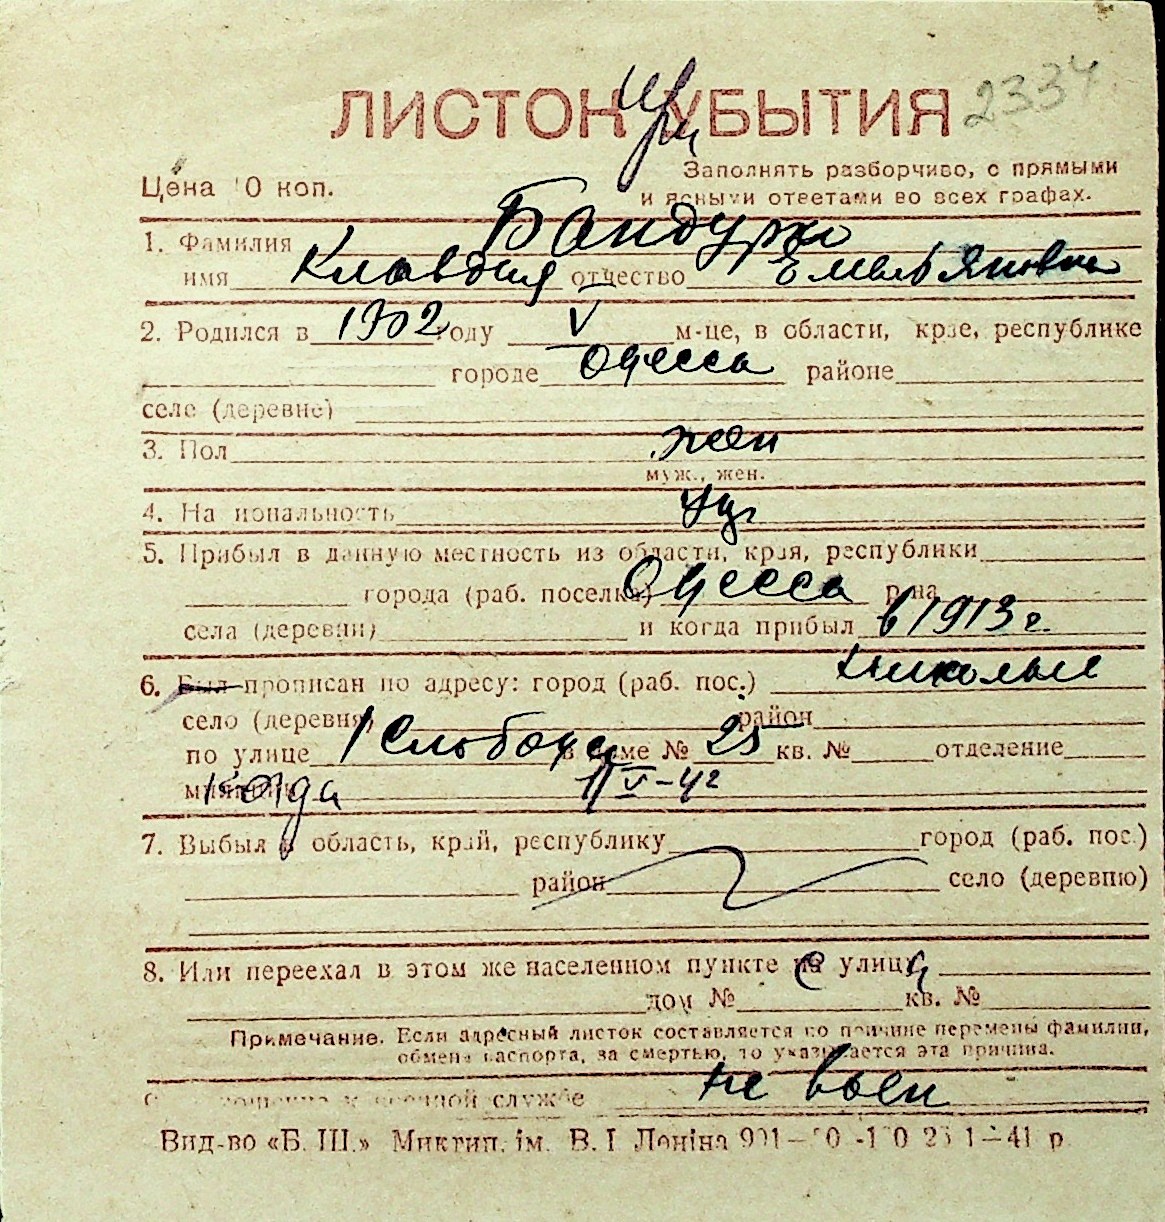 ЛИСТОК УБЫТИЯ 2334
Заполнять разборчиво, с прямыми
Цена 10 коп. и ясными ответами во всех графах.
1. Фамилия Бандурко
имя Клавдия отчество Емельяновна
2. Родился в 1902 году V м-це, в области, крае, республике
городе Одесса районе
селе (деревне)
3. Пол жен
муж., жен.
4. Национальность укр
5. Прибыл в данную местность из области, края, республики
города (раб. поселка) Одесса р-на
села (деревни) и когда прибыл в 1913 г.
6. Был прописан по адресу: город (раб. пос.) Николаев
село (деревня) район
по улице 1 Слободск в доме № 25 кв. № отделение
милиции когда 11 V-42
7. Выбыл в область, край, республику город (раб. пос.)
район село (деревню)
8. Или переехал в этом же населенном пункте на улицу
дом № кв. №
Примечание. Если адресный листок составляется по причине перемены фамилии,
обмена паспорта, за смертью, то указывается эта причина.
отношение к военной службе не воен
Вид-во «Б. Ш.» Миктип. ім. В. І Леніна 1–41 р.